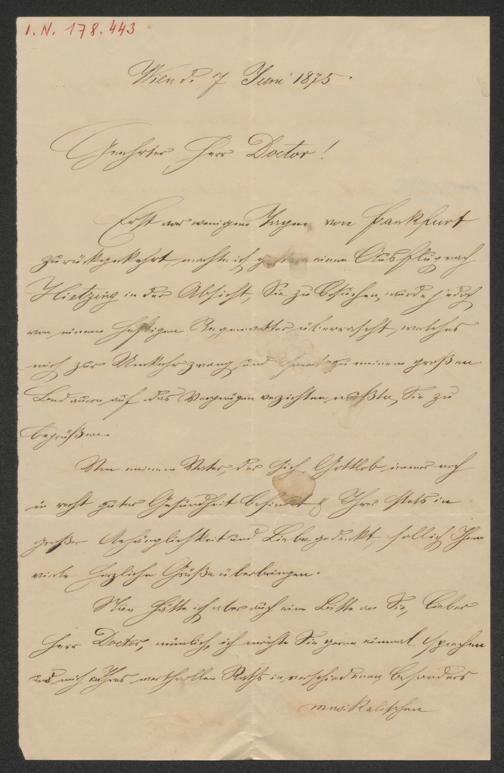 I. N. 178.443
Wien d. 7 Juni 1875.
Geehrter Herr Doctor!
Erst vor wenigen Tagen von Frankfurt
zurückgekehrt, machte ich gestern einen Ausflug nach
Hietzing in der Absicht, Sie zu besuchen, wurde jedoch
von einem heftigen Regenwetter überrascht, welches
mich zur Umkehr zwang, und ich zu meinem großen
Bedauern auf das Vergnügen verzichten mußte, Sie zu
begrüßen.
Von meinem Vater, der sich Gottlob immer noch
in recht guter Gesundheit befindet & Ihrer stets in
großer Anhänglichkeit und Liebe gedenkt, soll ich Ihnen
viele herzliche Grüße überbringen.
Nun hätte ich aber auch eine Bitte an Sie, lieber
Herr Doctor, nämlich ich möchte Sie gerne einmal sprechen
und mich Ihres werthvollen Raths in verschiedenen besonders
musikalischen